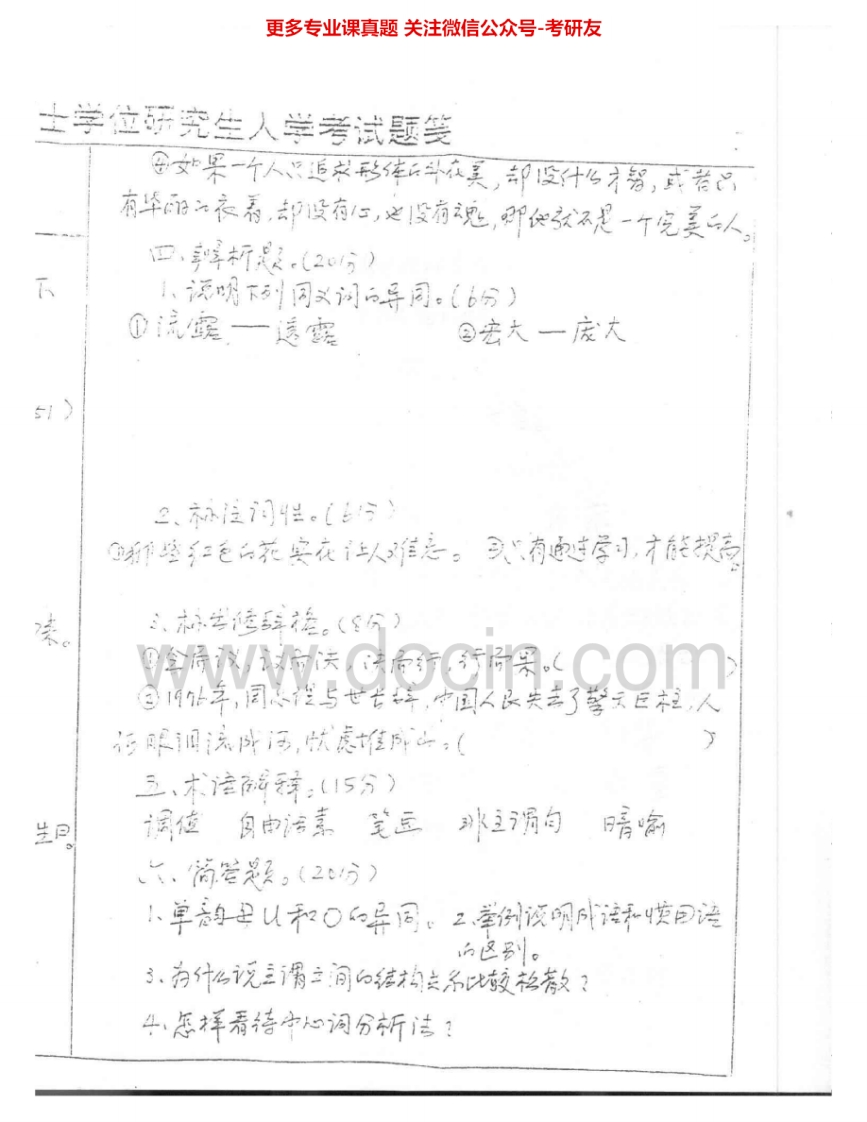 更多专业课真题 关注微信公众号-考研友
士学位研究生入学考试题笺
④如果一个人只追求形体的外在美,却没什么才智,或者只
有华丽的衣着,却没有心,也没有魂,那他就不是一个完美的人。
四、辨析题。(20分)
下
1、说明下列同义词的异同。(6分)
①流露 — 透露 ②宏大 — 庞大
51)
2、标注词性。(6分)
①那些红色的花实在让人难忘。 ②只有通过学习,才能提高。
3、标出修辞格。(8分)
来。
www.docin.com
①会而议,议而决,决而行,行而果。( )
②1976年,周总理与世长辞,中国人民失去了擎天巨柱,人
们眼泪流成河,忧虑堆成山。( )
五、术语解释。(15分)
调值 自由语素 笔画 非主谓句 暗喻
六、简答题。(20分)
1、单韵母u和o的异同。 2、举例说明成语和惯用语
的区别。
3、为什么说主谓之间的结构关系比较松散?
4、怎样看待中心词分析法?